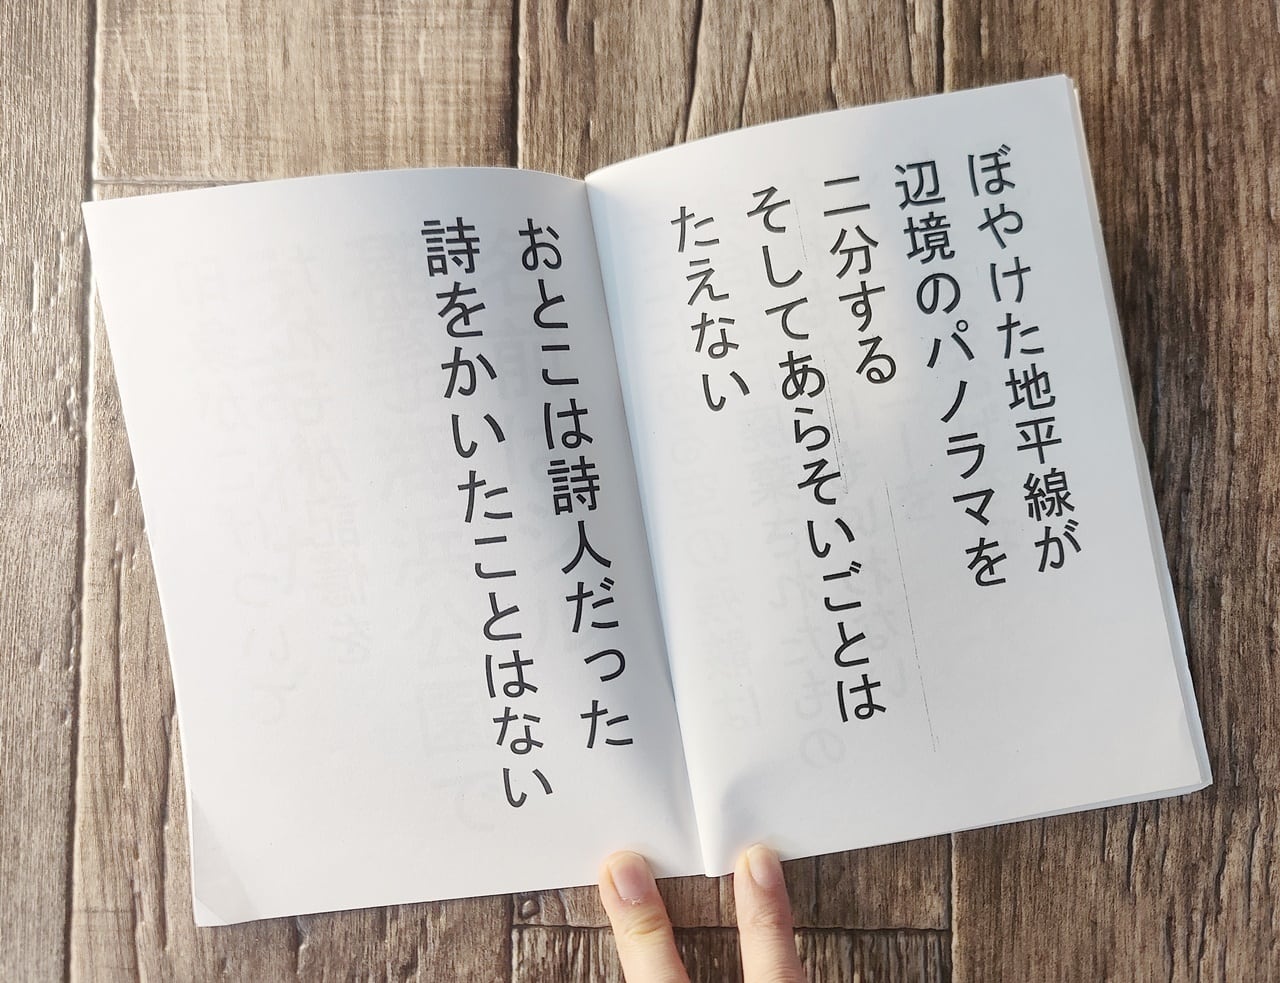 ぼやけた地平線が
辺境のパノラマを
二分する
そしてあらそいごとは
たえない
おとこは詩人だった
詩をかいたことはない